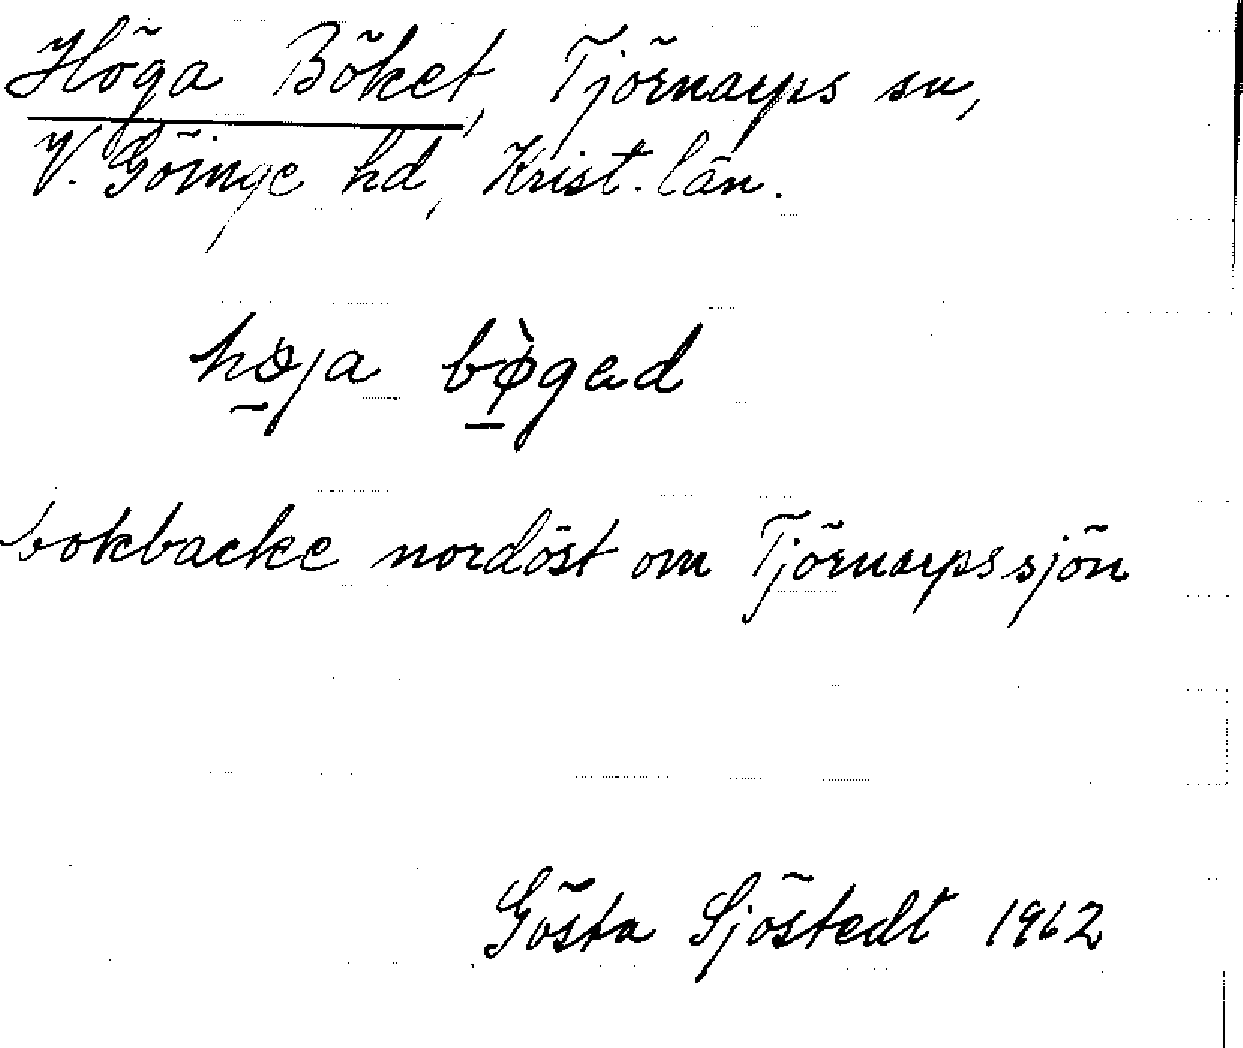 Höga Böket, Tjörnarps sn,
V. Göinge hd, Krist. län.
høja bø̀gad
bokbacke nordöst om Tjörnarpssjön
Gösta Sjöstedt 1962